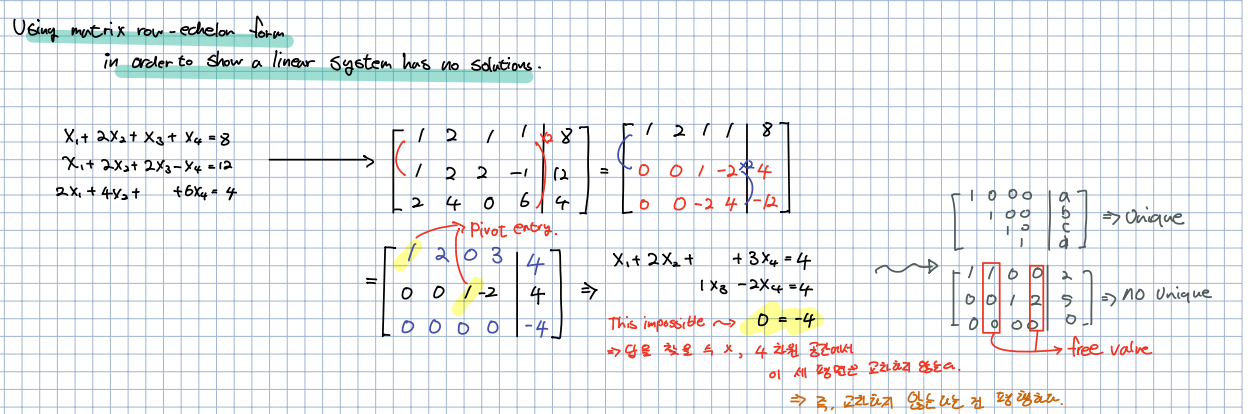 Using matrix row-echelon form
in order to show a linear system has no solutions.
x₁ + 2x₂ + x₃ + x₄ = 8
x₁ + 2x₂ + 2x₃ - x₄ = 12
2x₁ + 4x₂ + +6x₄ = 4
1 2 1 1 | 8
1 2 2 -1 | 12
2 4 0 6 | 4
x2
=
1 2 1 1 | 8
0 0 1 -2 | 4
0 0 -2 4 | -12
x2
pivot entry.
=
1 2 0 3 | 4
0 0 1 -2 | 4
0 0 0 0 | -4
⇒
x₁ + 2x₂ + +3x₄ = 4
1x₃ - 2x₄ = 4
This impossible ⇝ 0 = -4
⇒ 답을 찾을 수 x, 4차원 공간에서
이 세 평면은 교차하지 않는다.
⇒ 즉, 교차하지 않는다는 건 평행하다.
1 0 0 0 | a
1 0 0 | b
1 0 | c
1 | d
⇒ Unique
1 1 0 0 | 2
0 0 1 2 | 5
0 0 0 0 | 0
⇒ no unique
free value